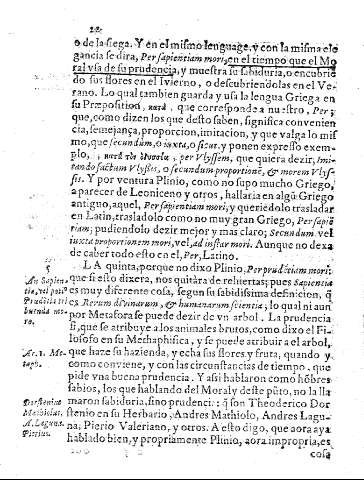 o de la siega. Y en el mismo lenguage, y con la misma ele
gancia se dira, Per sapientiam mori, en el tiempo que el Mo
ral vsa de su prudencia, y muestra su sabiduria, o encubriẽ
do sus flores en el Iuierno, o descubriendolas en el Ve-
rano. Lo qual tambien guarda y vsa la lengua Griega en
su Præposition, κατὰ, que corresponde a nuestro, Per;
que, como dizen los que desto saben, significa convenien
cia, semejança, proporcion, imitacion, y que valga lo mis
mo, que secundum, o iuxta, o sicut, y ponen expresso exem-
plo, per Vlyssem, que quiera dezir, Imi-
tando factum Vlyssis, o secundum proportionẽ, & morem Vlys-
sis. Y por ventura Plinio, como no supo mucho Griego,
a parecer de Leoniceno y otros, hallaria en algũ Griego
antiguo, aquel, Per sapientiam mori, y queriẽdolo trasladar
en Latin, trasladolo como no muy gran Griego, Per sapiẽ
tiam; pudiendolo dezir mejor y mas claro; Secundum, vel
iuxta proportionem mori, vel, ad instar mori. Aunque no dexa
de caber todo esto en el, Per, Latino.
5
LA quinta, porque no dixo Plinio, Per prudẽtiam mori:
An Sapien
tia, vel poti
Prudẽtia tri
buenda mo-
ro.
que si esto dixera, nos quitàra de rehiertas; pues Sapientia
es muy diferente cosa, segun su sabidissima definicion, q̃
es Rerum divinarum, & humanarum scientia, lo qual ni aun
por Metafora se puede dezir de vn arbol. La prudencia
si, que se atribuye a los animales brutos, como dixo el Fi-
losofo en su Mechaphisica, y se puede atribuir a el arbol,
Ar. 1. Me-
taph.
que haze su hazienda, y echa sus flores y fruta, quando y
como conviene, y con las circunstancias de tiempo, que
pide vna buena prudencia. Y assi hablaron como hõbres
sabios, los que hablando del Moral y deste pũto, no la lla
maron sabiduria, sino prudencia: q̃ son Theoderico Dor
Dorstenius
Mathiolus
A. Laguna
Pierius.
stenio en su Herbario, Andres Mathiolo, Andres Lagu-
na, Pierio Valeriano, y otros. A esto digo, que aora aya
hablado bien, y propriamente Plinio, aora impropria, es
cosa